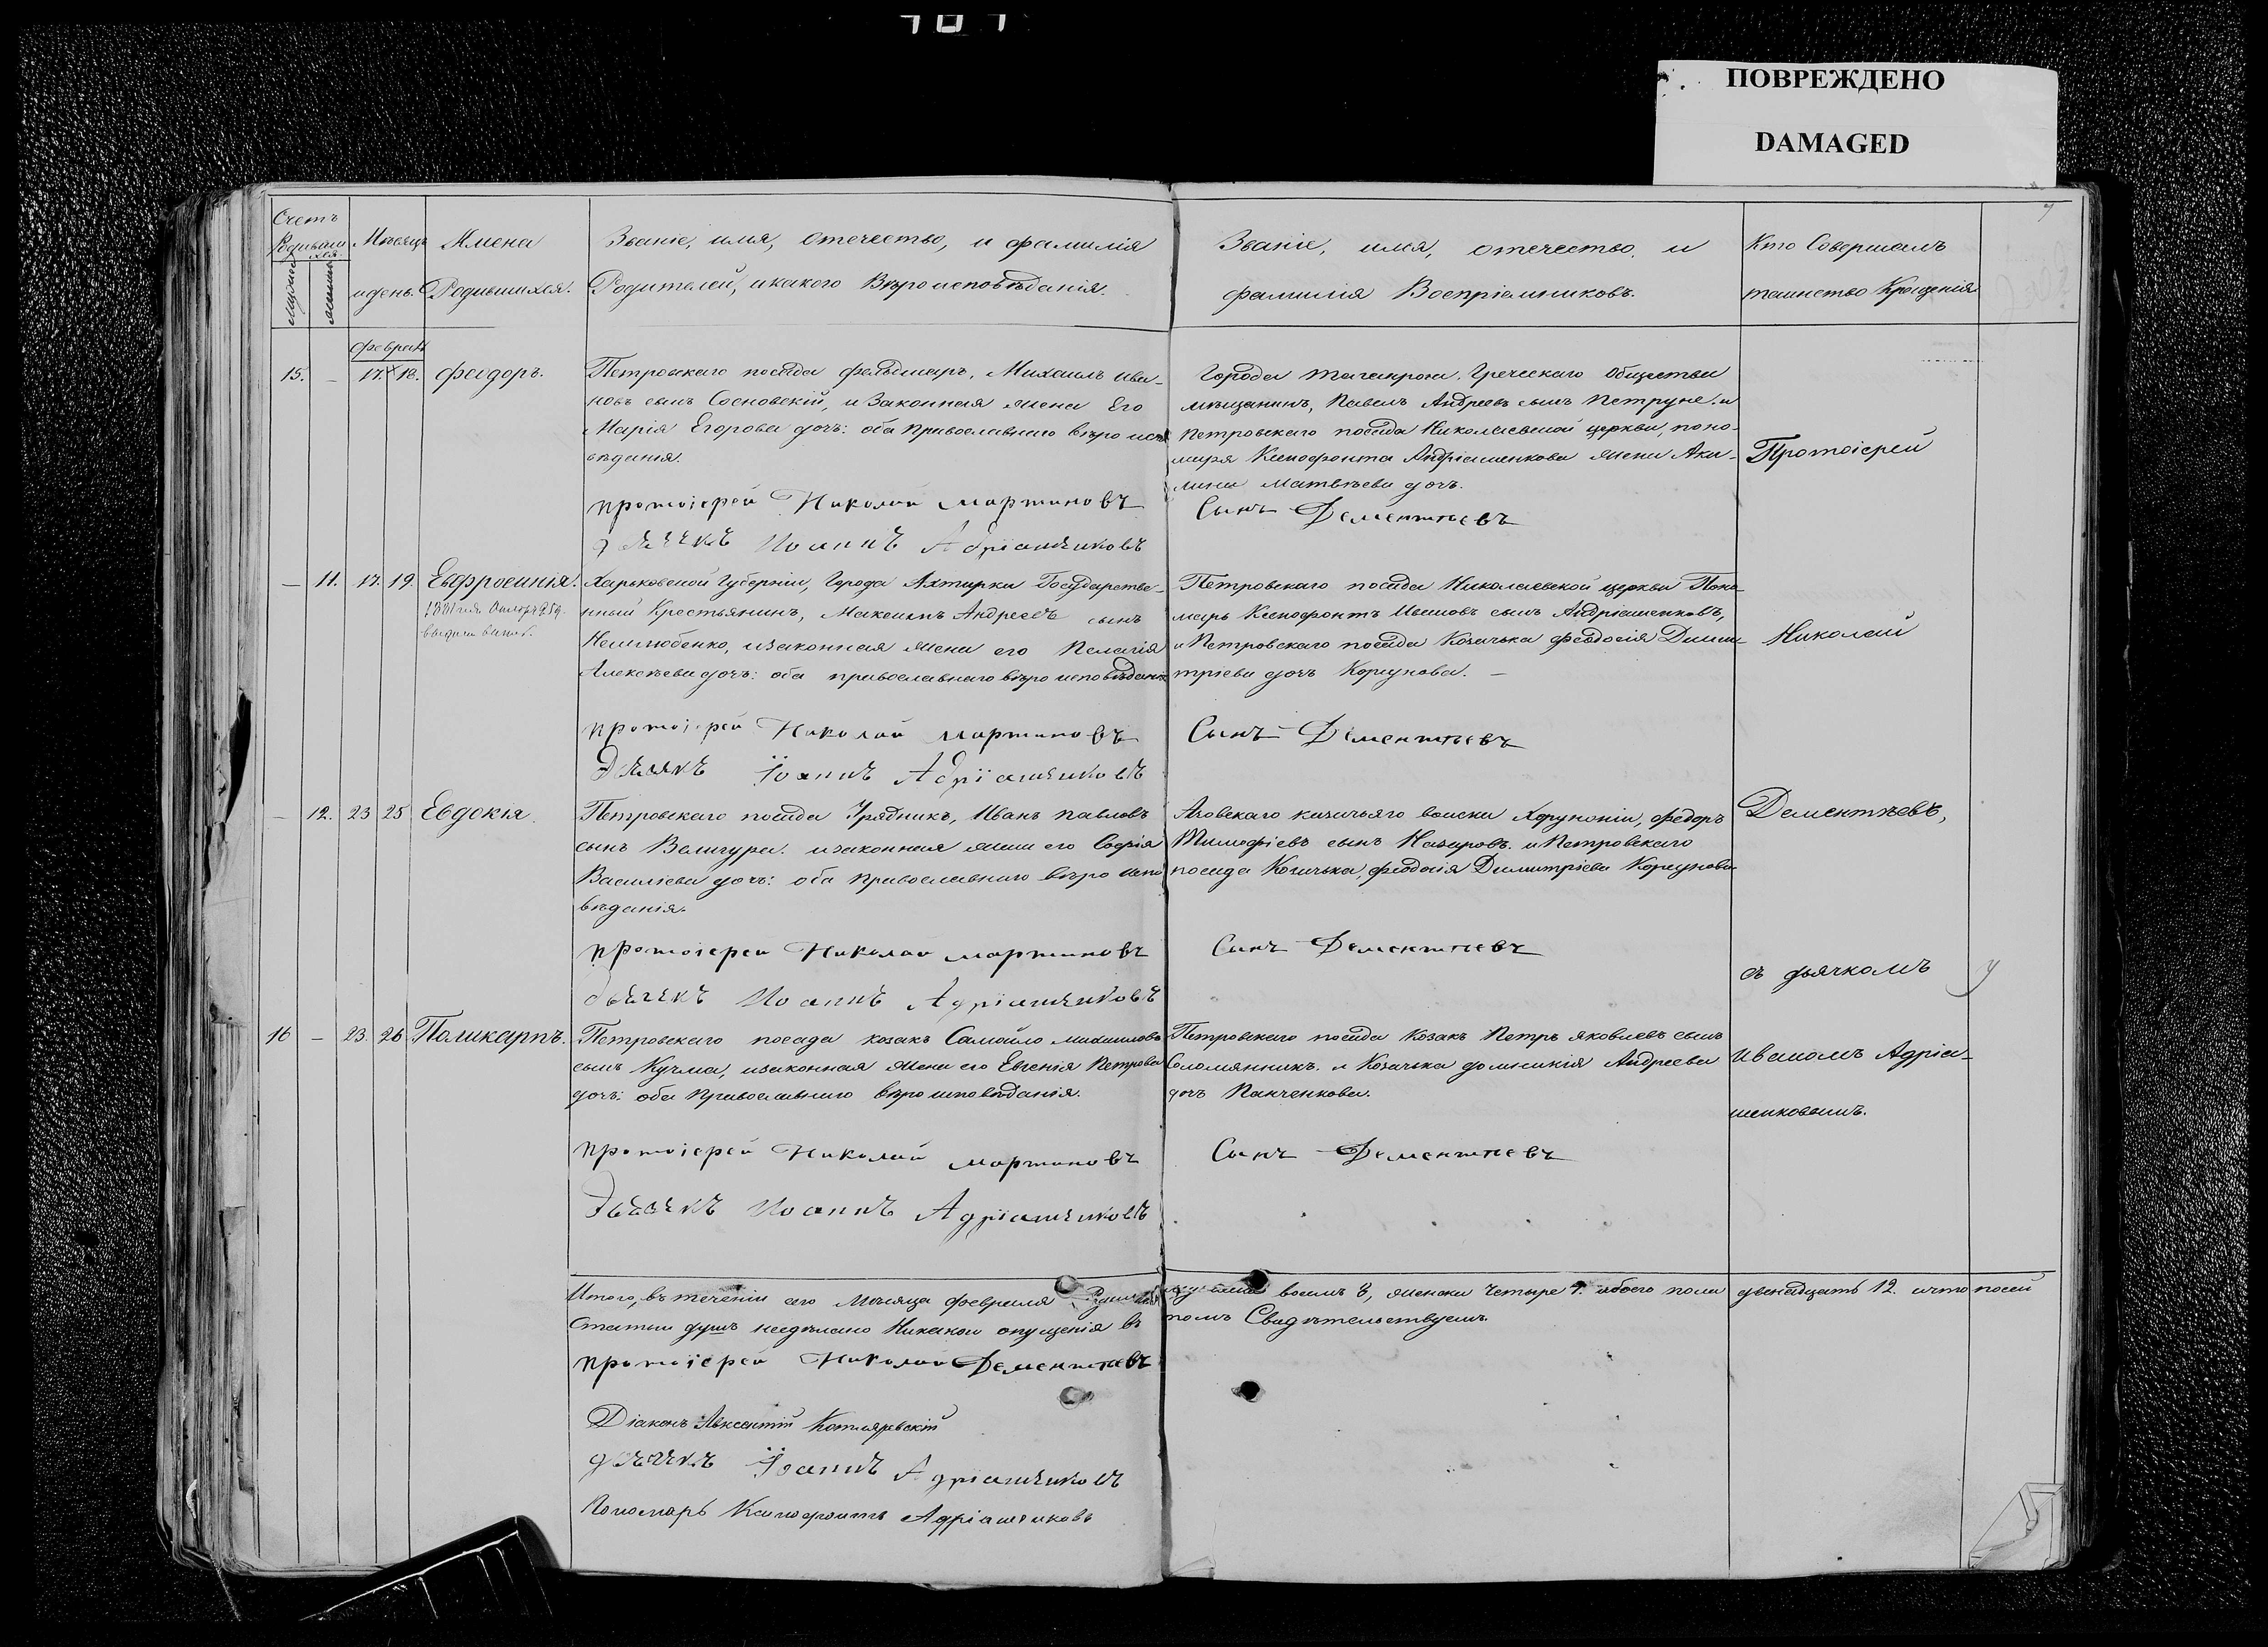 ПОВРЕЖДЕНО
DAMAGED
Счетъ
Родивших
ся.
Мѣсяцъ
и день.
Имена
Родившихся.
Званіе, имя, отечество, и фамилія
Родителей, и какого Вѣроисповѣданія.
Званіе, имя, отечество, и
фамилія Воспріемниковъ.
Кто Совершалъ
таинство Крещенія
феврал
15. – 17. 18. феодоръ.
Петровскаго посада фельдшеръ, Михаилъ Ива-
новъ сынъ Сосновскій, и Законная жена Его
Марія Егорова дочь: оба Православнаго вѣро испо
вѣданія.
протоіерей Николай Мартиновъ
Іоаннъ Адріашенковъ
Города Таганрога. Греческаго Общества
мѣщанинъ, Павелъ Андреевъ сынъ Петруне. и
Петровскаго посада Николаевской церкви, поно-
маря Ксенофонта Андріашенкова жена Аку-
лина Матвѣева дочь.
Сынъ Дементьевъ
– 11. 17. 19. Евфросинія.
Харьковской Губерніи, Города Ахтырки Государстве-
нный Крестьянинъ, Максимъ Андреевъ сынъ
Нешлюбенко, и законная жена его Пелагія
Алексѣева дочь: оба православнаго вѣро исповѣданія
протоіерей Николай Мартиновъ
Іоаннъ Адріашенковъ
Петровскаго посада Николаевской церкви Поно-
марь Ксенофонтъ Ивановъ сынъ Андріашенковъ,
и Петровскаго посада Козачька феодосія Дими-
тріева дочь Коржунова. –
Сынъ Дементьевъ
– 12. 23 25 Евдокія.
Петровскаго посада Урядникъ, Иванъ Павловъ
сынъ Величура. и законная жена его Софія
Василіева дочь: оба Православнаго вѣро испо
вѣданія.
протоіерей Николай Мартиновъ
Іоаннъ Адріашенковъ
Азовскаго казачьяго войска Хорунжій, федоръ
Тимофіевъ сынъ Назаровъ. и Петровскаго
посада Козачька, феодосія Димитріева Коржунова
Сынъ Дементьевъ
16 – 23. 26 Поликарпъ.
Петровскаго посада козакъ Самойло Михайловъ
сынъ Кучма, и законная жена его Евгенія Петрова
дочь: оба Православнаго вѣроисповѣданія.
протоіерей Николай Мартиновъ
Іоаннъ Адріашенковъ
Петровскаго посада Козакъ Петръ Яковлевъ сынъ
Соломянникъ. и Козачька домникія Андреева
дочь Панченкова.
Сынъ Дементьевъ
Протоіерей
Николай
Дементьевъ,
съ дьячкомъ
Иваномъ Адріа-
шенковымъ.
Итого, въ теченіи сего Мѣсяца февраля восемъ 8, женска Четыре 4. обоего пола двенадцать 12. и что по сей
Статьи душъ несдѣлано Никакой опущенія въ томъ Свидѣтельствуемъ.
протоіерей Николай Дементьевъ
Діаконъ Авксентій Котляревскій
Іоаннъ Адріашенковъ
Пономарь Ксенофонтъ Адріашенковъ